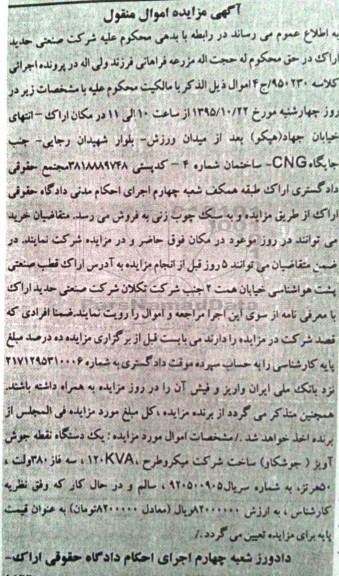 آگهی مزایده اموال منقول
به اطلاع عموم می رساند در رابطه با بدهی محکوم علیه شرکت صنعتی حدید
اراک در حق محکوم له حجت اله مزرعه فراهانی فرزند ولی اله در پرونده اجرائی
کلاسه ۹۵۰۲۳۰/ج۴ اموال ذیل الذکر با مالکیت محکوم علیه با مشخصات زیر در
روز چهارشنبه مورخ ۱۳۹۵/۱۰/۲۲ از ساعت ۱۰ الی ۱۱ در مکان اراک – انتهای
خیابان جهاد(هپکو) بعد از میدان ورزش- بلوار شهیدان رجایی- جنب
جایگاه CNG- ساختمان شماره ۴ – کدپستی ۳۸۱۸۸۸۹۷۴۸مجتمع حقوقی
دادگستری اراک طبقه همکف شعبه چهارم اجرای احکام مدنی دادگاه حقوقی
اراک از طریق مزایده و به سبک چوب زنی به فروش می رسد. متقاضیان خرید
می توانند در روز موعود در مکان فوق حاضر و در مزایده شرکت نمایند. در
ضمن متقاضیان می توانند ۵ روز قبل از انجام مزایده به آدرس اراک قطب صنعتی
پشت هواشناسی خیابان همت ۲ جنب شرکت تکلان شرکت صنعتی حدید اراک
با معرفی نامه از سوی این اجرا مراجعه و اموال را رویت نمایند.ضمنا افرادی که
قصد شرکت در مزایده را دارند می بایست قبل از برگزاری مزایده ده درصد مبلغ
پایه کارشناسی را به حساب سپرده موقت دادگستری به شماره ۲۱۷۱۲۹۵۳۱۰۰۰۶
نزد بانک ملی ایران واریز و فیش آن را در روز مزایده به همراه داشته باشند.
همچنین متذکر می گردد از برنده مزایده ،کل مبلغ مورد مزایده فی المجلس از
برنده اخذ خواهد شد ./مشخصات اموال مورد مزایده : یک دستگاه نقطه جوش
آویز ( جوشکاو) ساخت شرکت میکروطرح ،۱۲۰KVA ، سه فاز ۳۸۰ولت ،
۵۰هرتز، به شماره سریال۹۲۰۵۰۰۹۰۵ ، سالم و در حال کار که وفق نظریه
کارشناس ، به ارزش ۸۲۰۰۰۰۰۰ریال (معادل ۸۲۰۰۰۰۰تومان) به عنوان قیمت
پایه برای مزایده تعیین می گردد ./
دادورز شعبه چهارم اجرای احکام دادگاه حقوقی اراک-
ParsNamadData